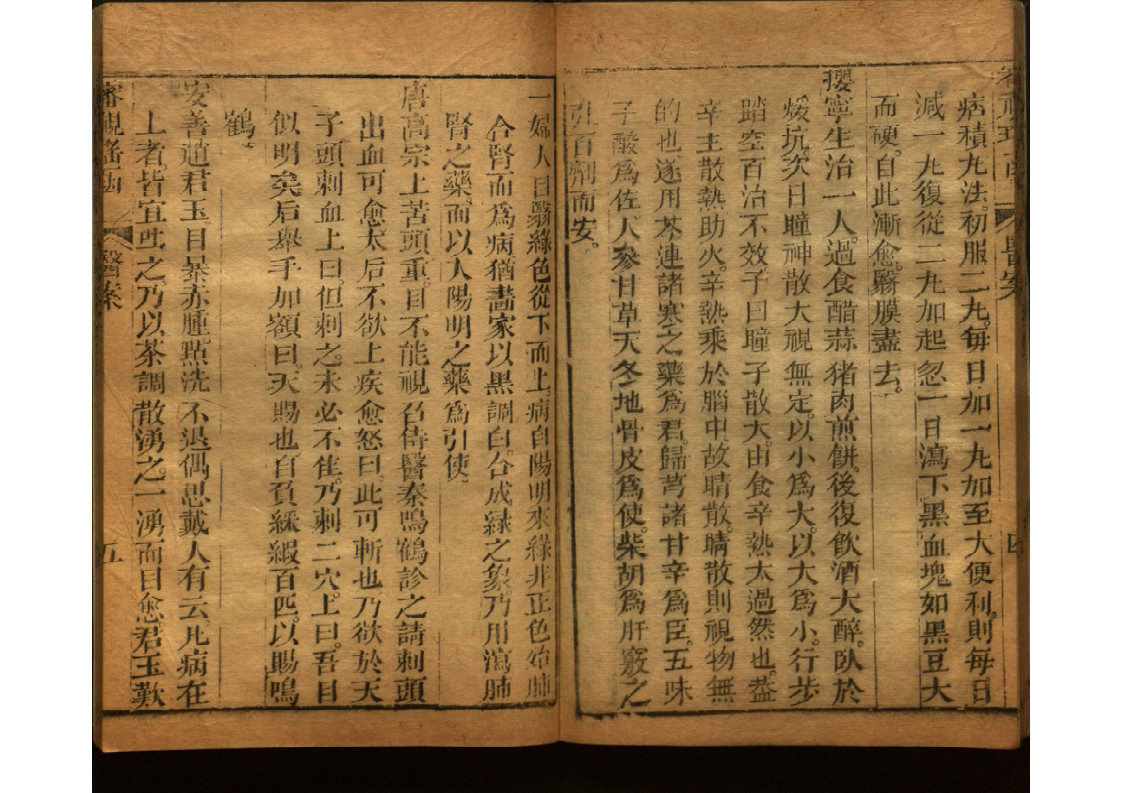 醫案
痞積九法。初服二九。每日加一九。加至大便利。則每日
減一九。復從二九加起。忽一日瀉下黑血塊如黑豆大
而硬。自此漸愈。翳膜盡去。
攖寧生治一人。過食醋蒜猪肉煎餅。後復飲酒大醉。臥於
煖坑。次日瞳神散大。視無定。以小為大。以大為小。行步
踏空。百治不效。子曰。瞳子散大。由食辛熱太過然也。蓋
辛主散。熱助火。辛熱乘於腦中。故睛散。睛散則視物無
的也。遂用芩連諸寒之藥為君。歸芎諸甘辛為臣。五味
子酸為佐。人參甘草天冬地骨皮為使。柴胡為肝竅之
引。百劑而安。
一婦人目翳綠色從下而上。病自陽明來。綠非正色。殆肺
合腎而為病。猶畫家以黑調白。合成綠之象。乃用瀉肺
腎之藥。而以入陽明之藥為引使。
唐高宗上苦頭重。目不能視。召侍醫秦鳴鶴診之。請刺頭
出血可愈。太后不欲上疾愈。怒曰。此可斬也。乃欲於天
子頭刺血。上曰。但刺之。未必不佳。乃刺二穴。上曰。吾目
似明矣。后舉手加額曰。天賜也。自負綵緞百匹。以賜鳴
鶴。
安善道君玉目暴赤腫。點洗不退。偶思戴人有云。凡病在
上者皆宜吐之。乃以茶調散湧之。一湧而目愈。君玉歎
審視瑤函 醫案 五